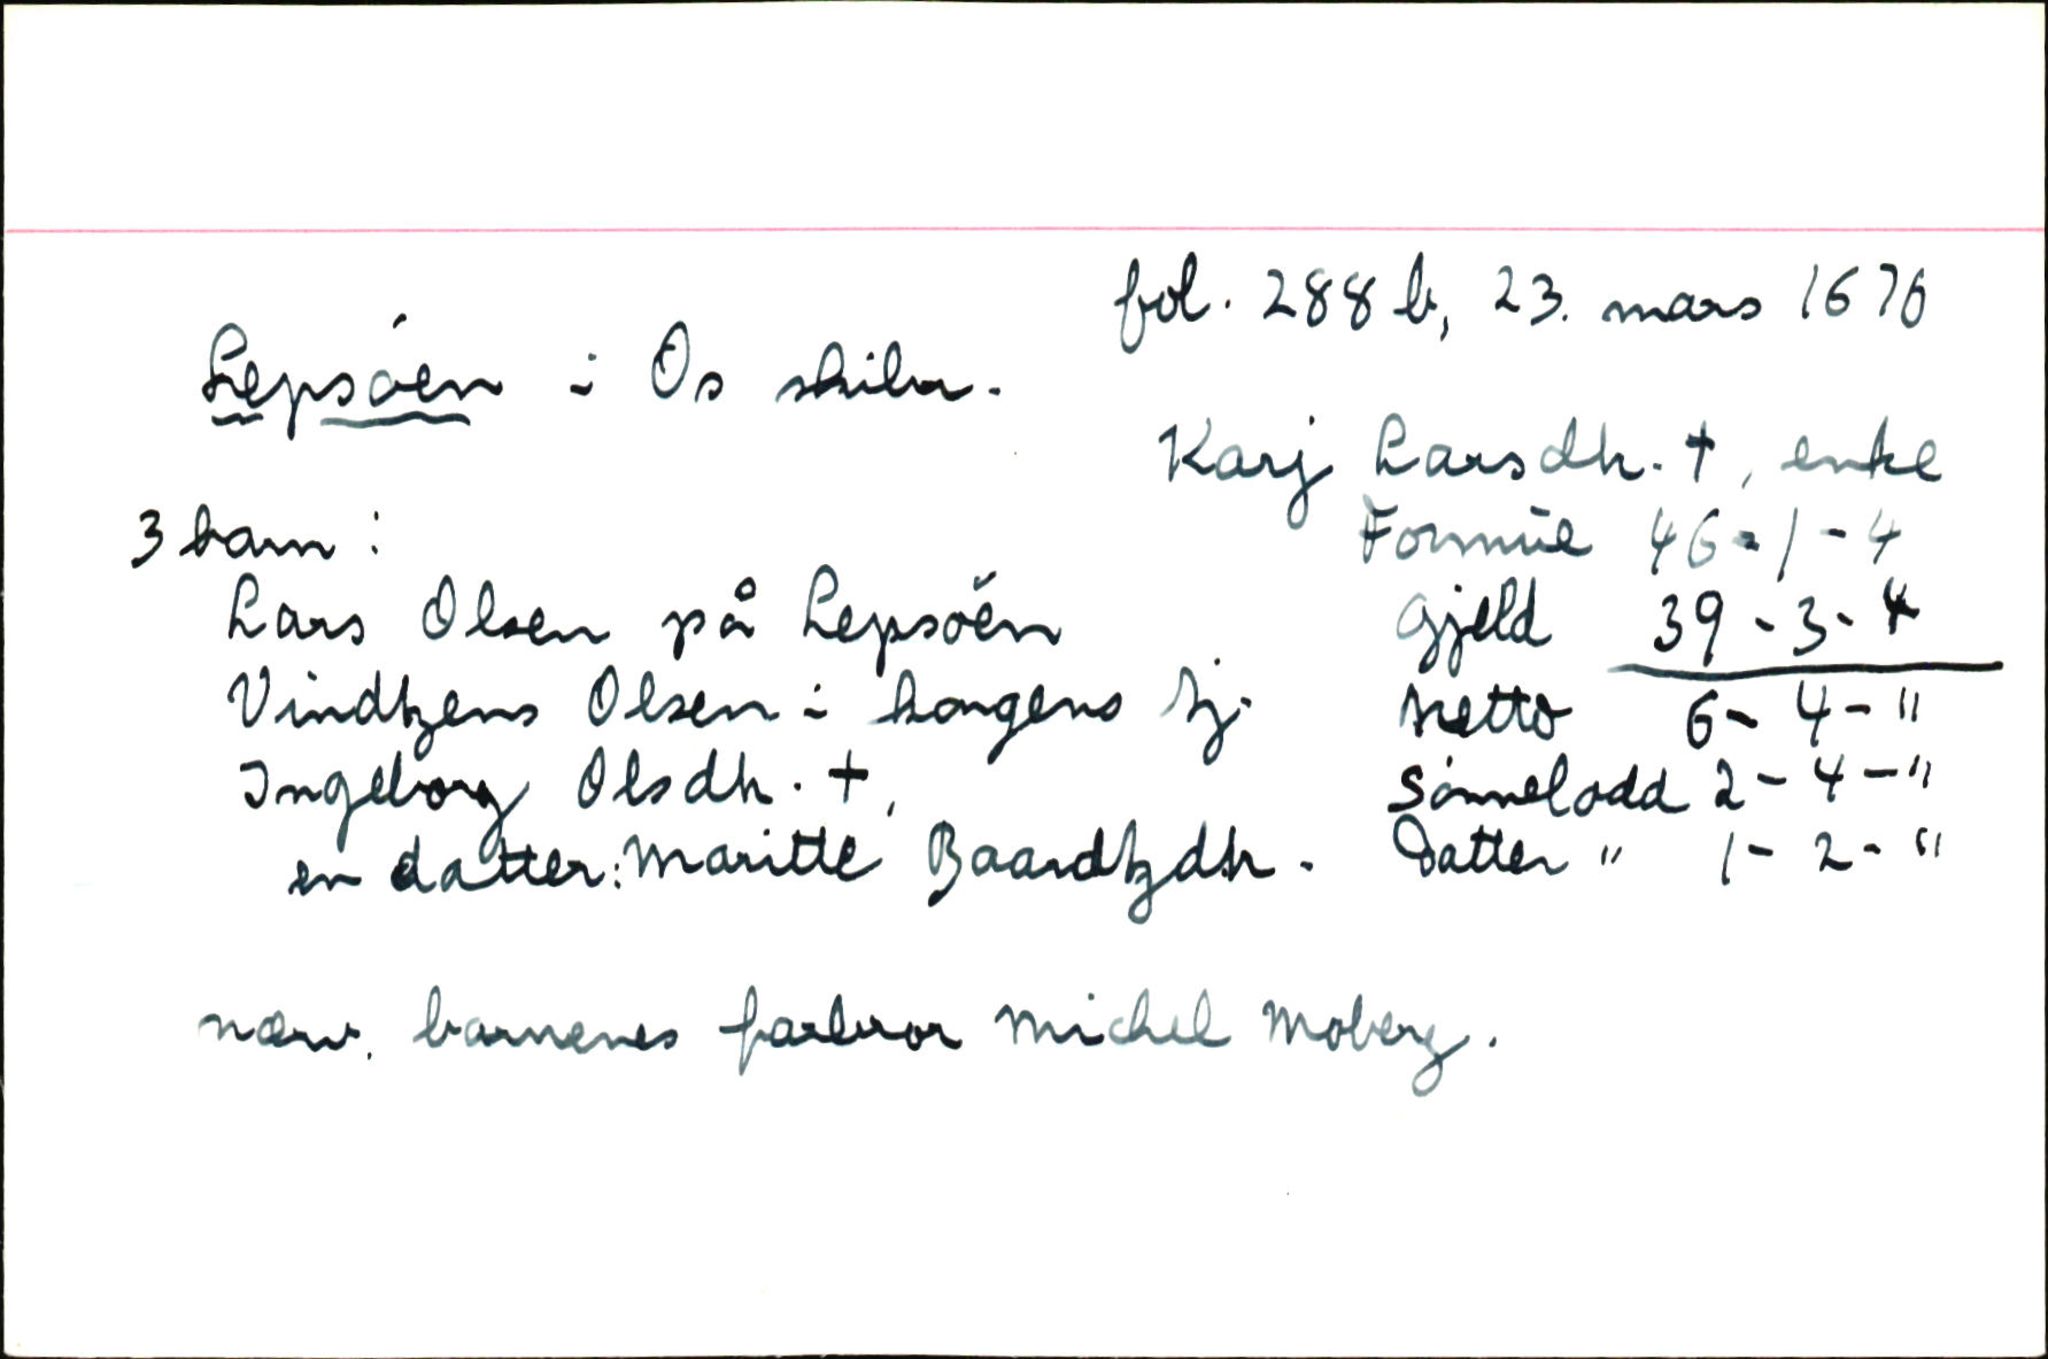 fol. 288 b, 23. mars 1676
Lepsöen i Os skibr.
Karj Larsdh. †, enke
3 barn:
Formue 46-1-4
Lars Olsen på Lepsöen
Gjeld 39-3-4
Vindtzens Olsen i kongens tj.
Netto 6-4-"
Ingeborg Olsdh. †,
Sönnelodd 2-4-"
en datter: Maritte Baardtzdh.
Datter " 1-2-"
nærv. barnenes farbror Michel Moberg.